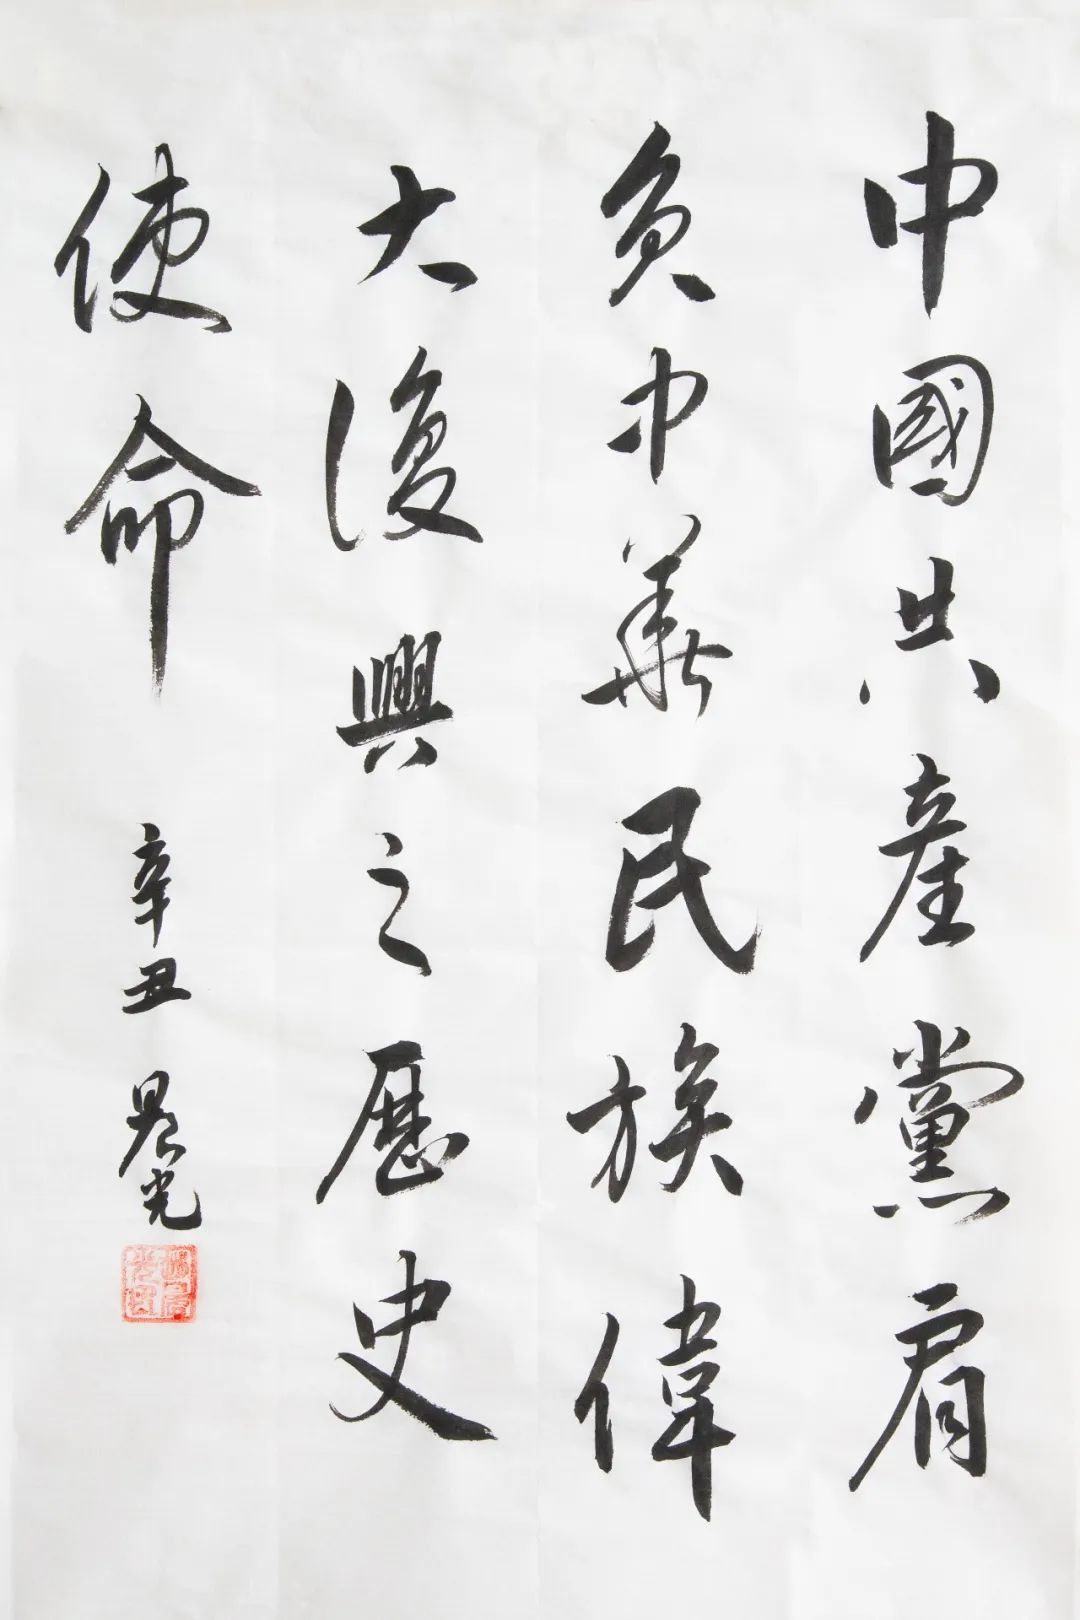 中國共產黨肩
負中華民族偉
大復興之歷史
使命
辛丑 晨光